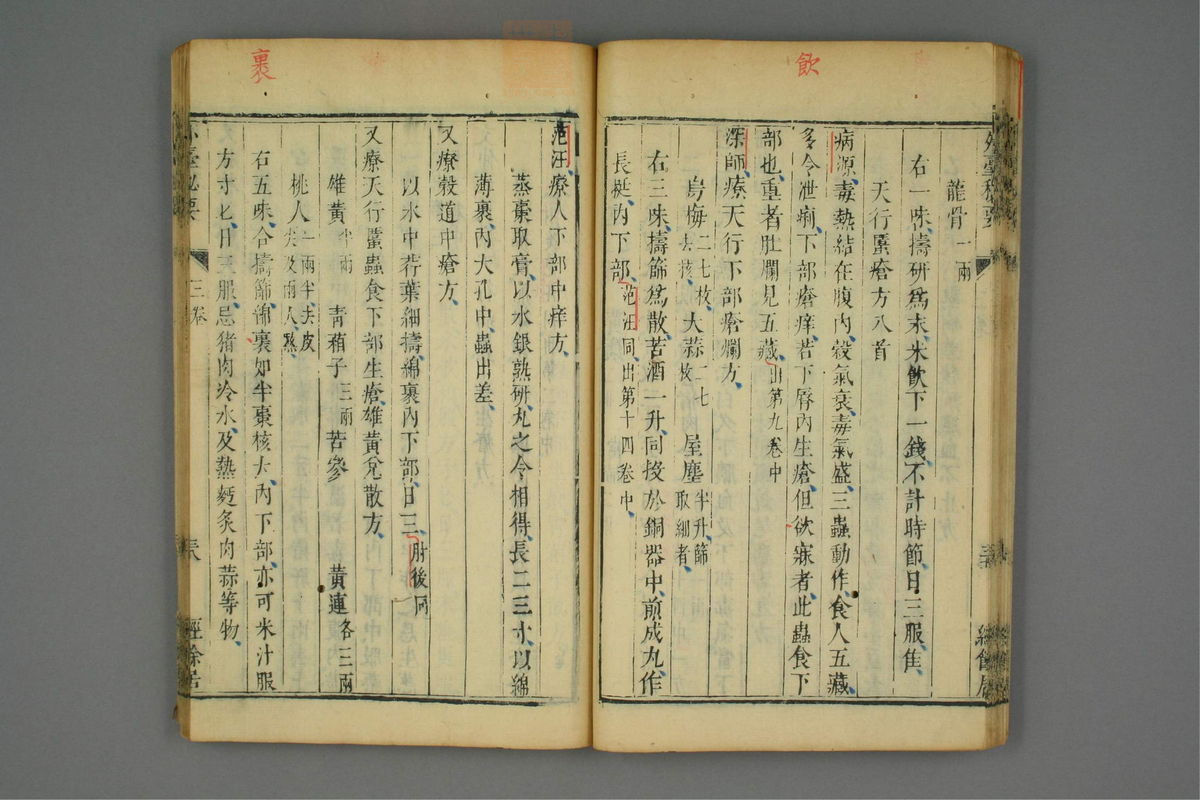 飲
外臺秘要
龍骨一兩
右一味擣研爲末米飲下一錢不計時節日三服隹
天行䘌瘡方八首
病源毒熱結在腹內穀氣衰毒氣盛三蟲動作食人五藏
多令泄痢下部瘡癢若下唇內生瘡但欲寐者此蟲食下
部也重者肚爛見五藏出第九卷中
深師療天行下部瘡爛方
烏梅二七枚去核 大蒜二七枚 屋塵半升篩取細者
右三味擣篩爲散苦酒一升同投於銅器中煎成丸作
長梃內下部范汪同出第十四卷中
裹
范汪療人下部中痒方
蒸棗取膏以水銀熟研丸之令相得長二三寸以綿
薄裹內大孔中蟲出差
又療穀道中瘡方
以水中荇葉細擣綿裹內下部日三肘後同
又療天行䘌蟲食下部生瘡雄黃兌散方
雄黃半兩 青葙子三兩 苦參 黃連各三兩
桃人一兩半去皮尖及兩人熬
右五味合擣篩綿裹如半棗核大內下部亦可米汁服
方寸匕日三服忌猪肉冷水及熱麪炙肉蒜等物
外臺秘要 三卷 經餘居